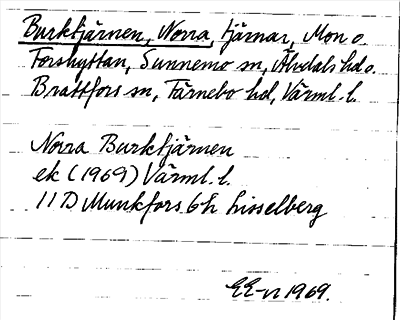 Burktjärnen, Norra, tjärnar, Mon o.
Forshyttan, Sunnemo sn, Älvdals hd o.
Brattfors sn, Färnebo hd, Värml. l.
Norra Burktjärnen
ek (1969) Värml. l.
11 D Munkfors 6h Lisselberg
EE-n 1969.